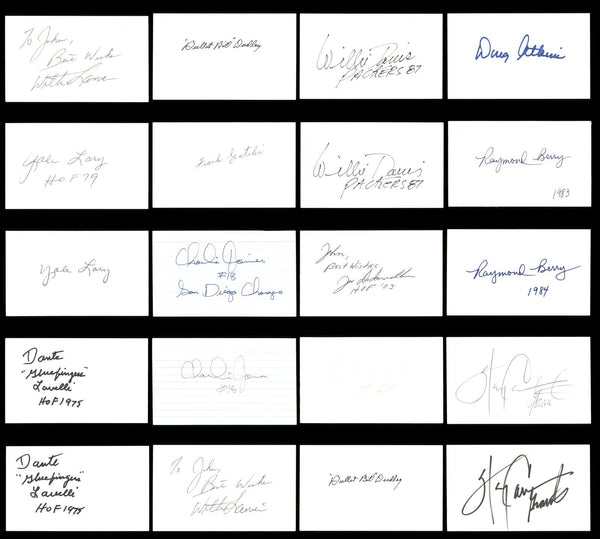 To John,
Best Wishes
Willie Lanier
"Bullet Bill" Dudley
Willie Davis
PACKERS 87
Doug Atkins
Yale Lary
HOF 79
Frank Gatski
Willie Davis
PACKERS 87
Raymond Berry
1983
Yale Lary
Charlie Joiner
#18
San Diego Chargers
John,
Best Wishes,
Joe DeLamielleure
HOF '03
Raymond Berry
1984
Dante
"Gluefingers"
Lavelli
HOF 1975
Charlie Joiner
#18
Dante
"Gluefingers"
Lavelli
HOF 1975
To John,
Best Wishes
Willie Lanier
"Bullet Bill" Dudley